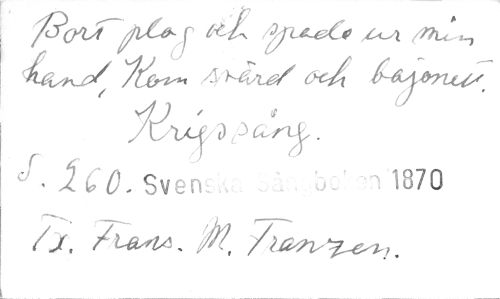 Bort plog och spade ur min
hand, Kom svärd och bajonett.
Krigssång.
S. 260. Svenska Sångboken 1870
Tx. Frans. M. Franzen.